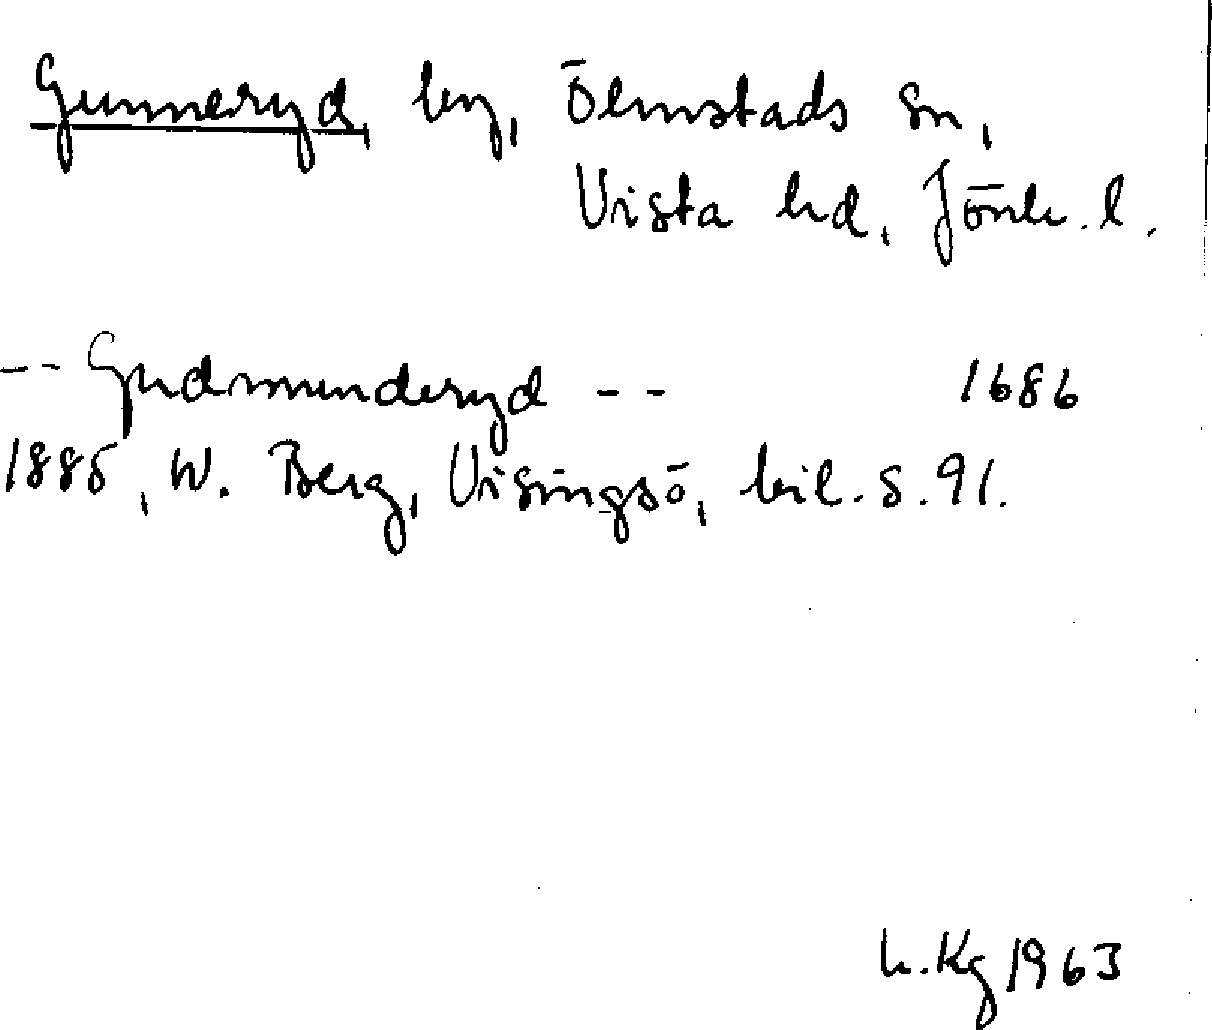 Gunneryd, by, Ölmstads sn,
Vista hd, Jönk. l.
-- Gudmunderyd -- 1686
1885, W. Berg, Visingsö, bil. s. 91.
h. Kg 1963